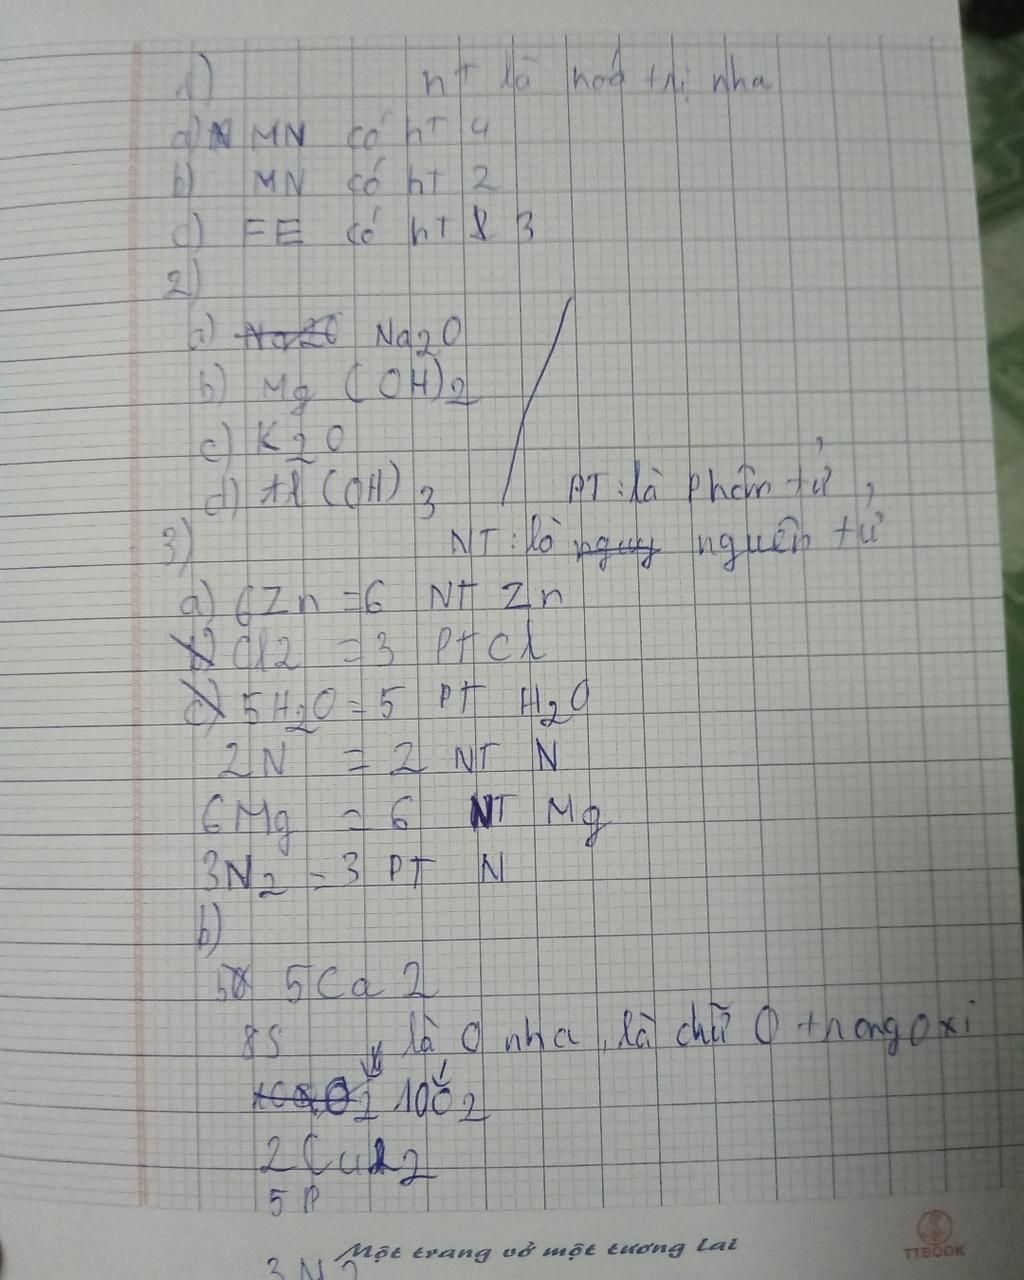 1) hT là hoá trị nha
a) MN có hT 4
b) MN có hT 2
c) FE có hT 3
2)
a) Na2O
b) Mg (OH)2
c) K2O
d) Al (OH)3
PT: là phân tử,
3) NT: là nguyên tử
a) 6Zn = 6 NT Zn
Cl2 = 3 PT Cl
5H2O = 5 PT H2O
2N = 2 NT N
6Mg = 6 NT Mg
3N2 = 3 PT N
b)
5Ca 2
8S là O nha, là chữ O trong oxi
10O2
2Cu2
5P
3N2
Một trang vở một tương lai
TTBOOK